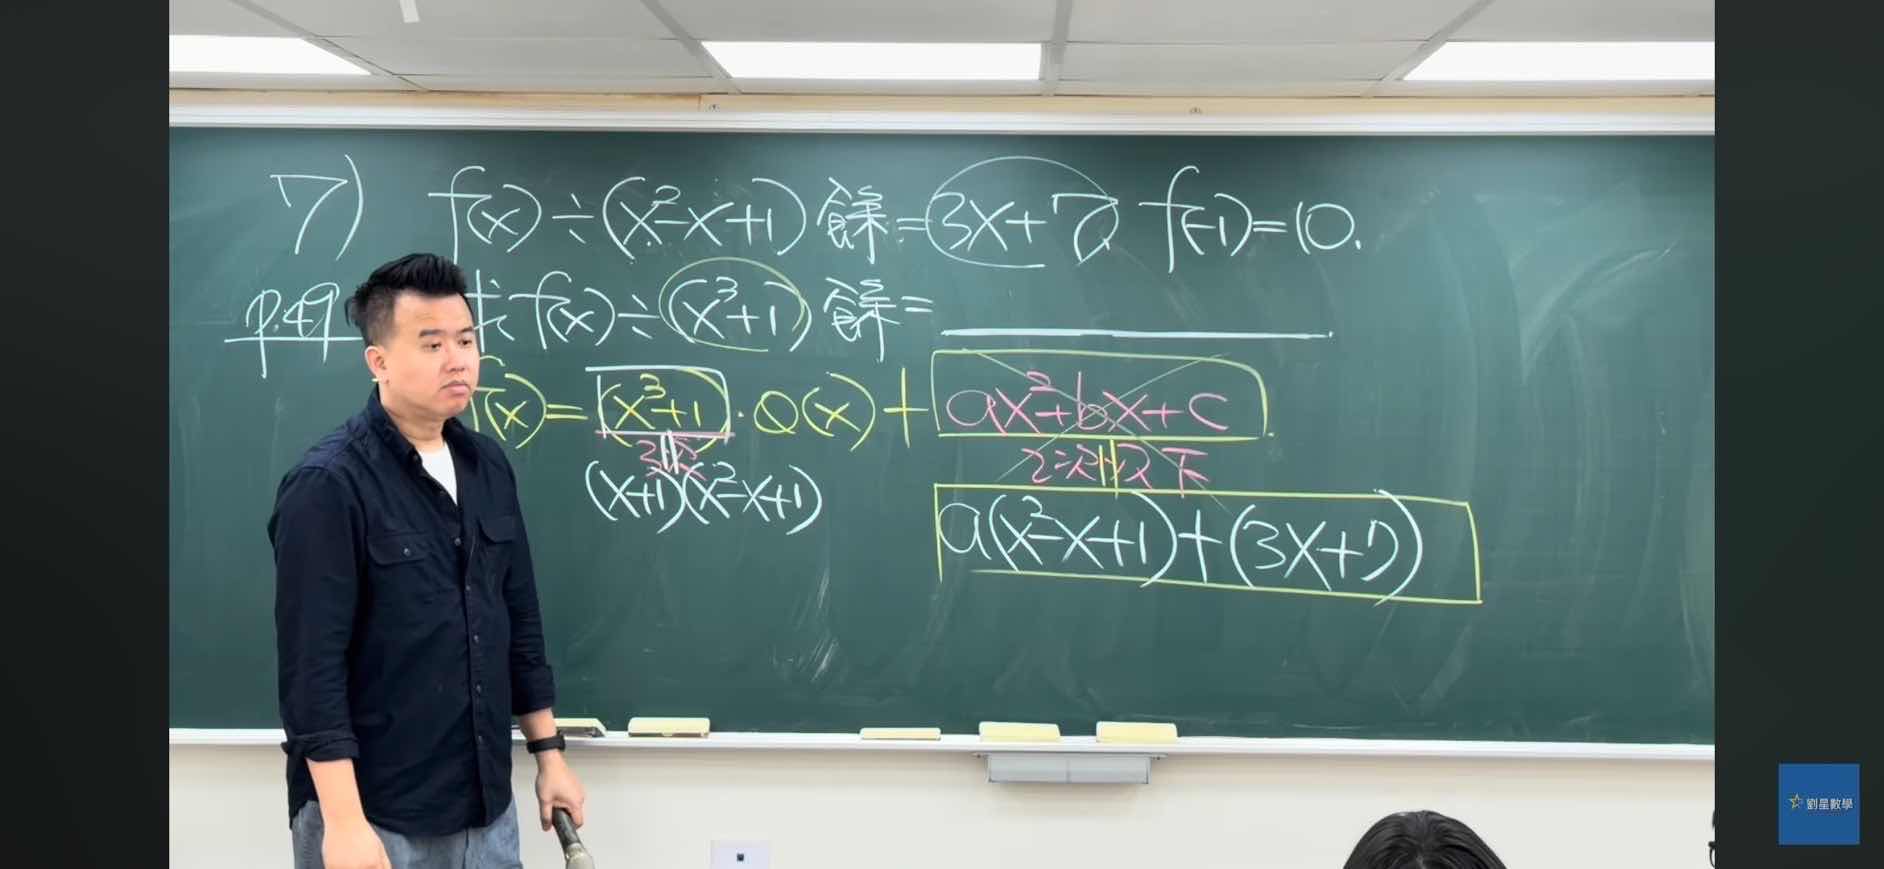 7) f(x)÷(x²-x+1) 餘=3x+7, f(-1)=10.
P.49 求 f(x)÷(x³+1) 餘=
f(x)=(x³+1)·Q(x)+ax²+bx+c
3次 2次以下
(x+1)(x²-x+1) a(x²-x+1)+(3x+7)
劉星數學